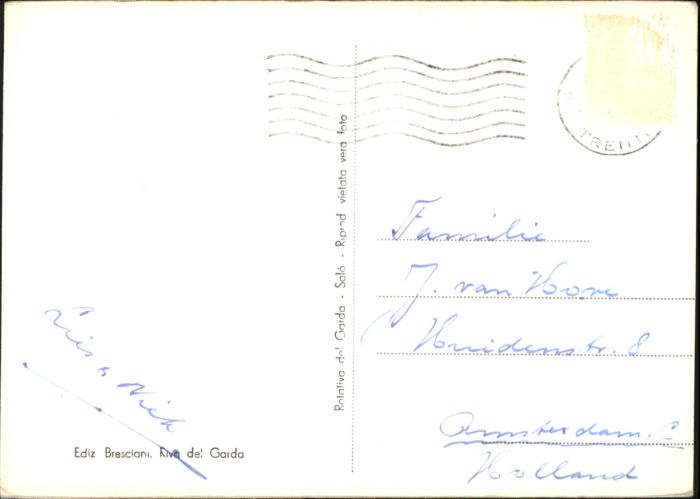 TRENT
Familie
J. van Hove
Huidenstr. 8
Amsterdam. C
Holland
Lies & Niek
Ediz Bresciani, Riva del Garda
Rotativa del Garda - Salò - Riprod vietata vera foto